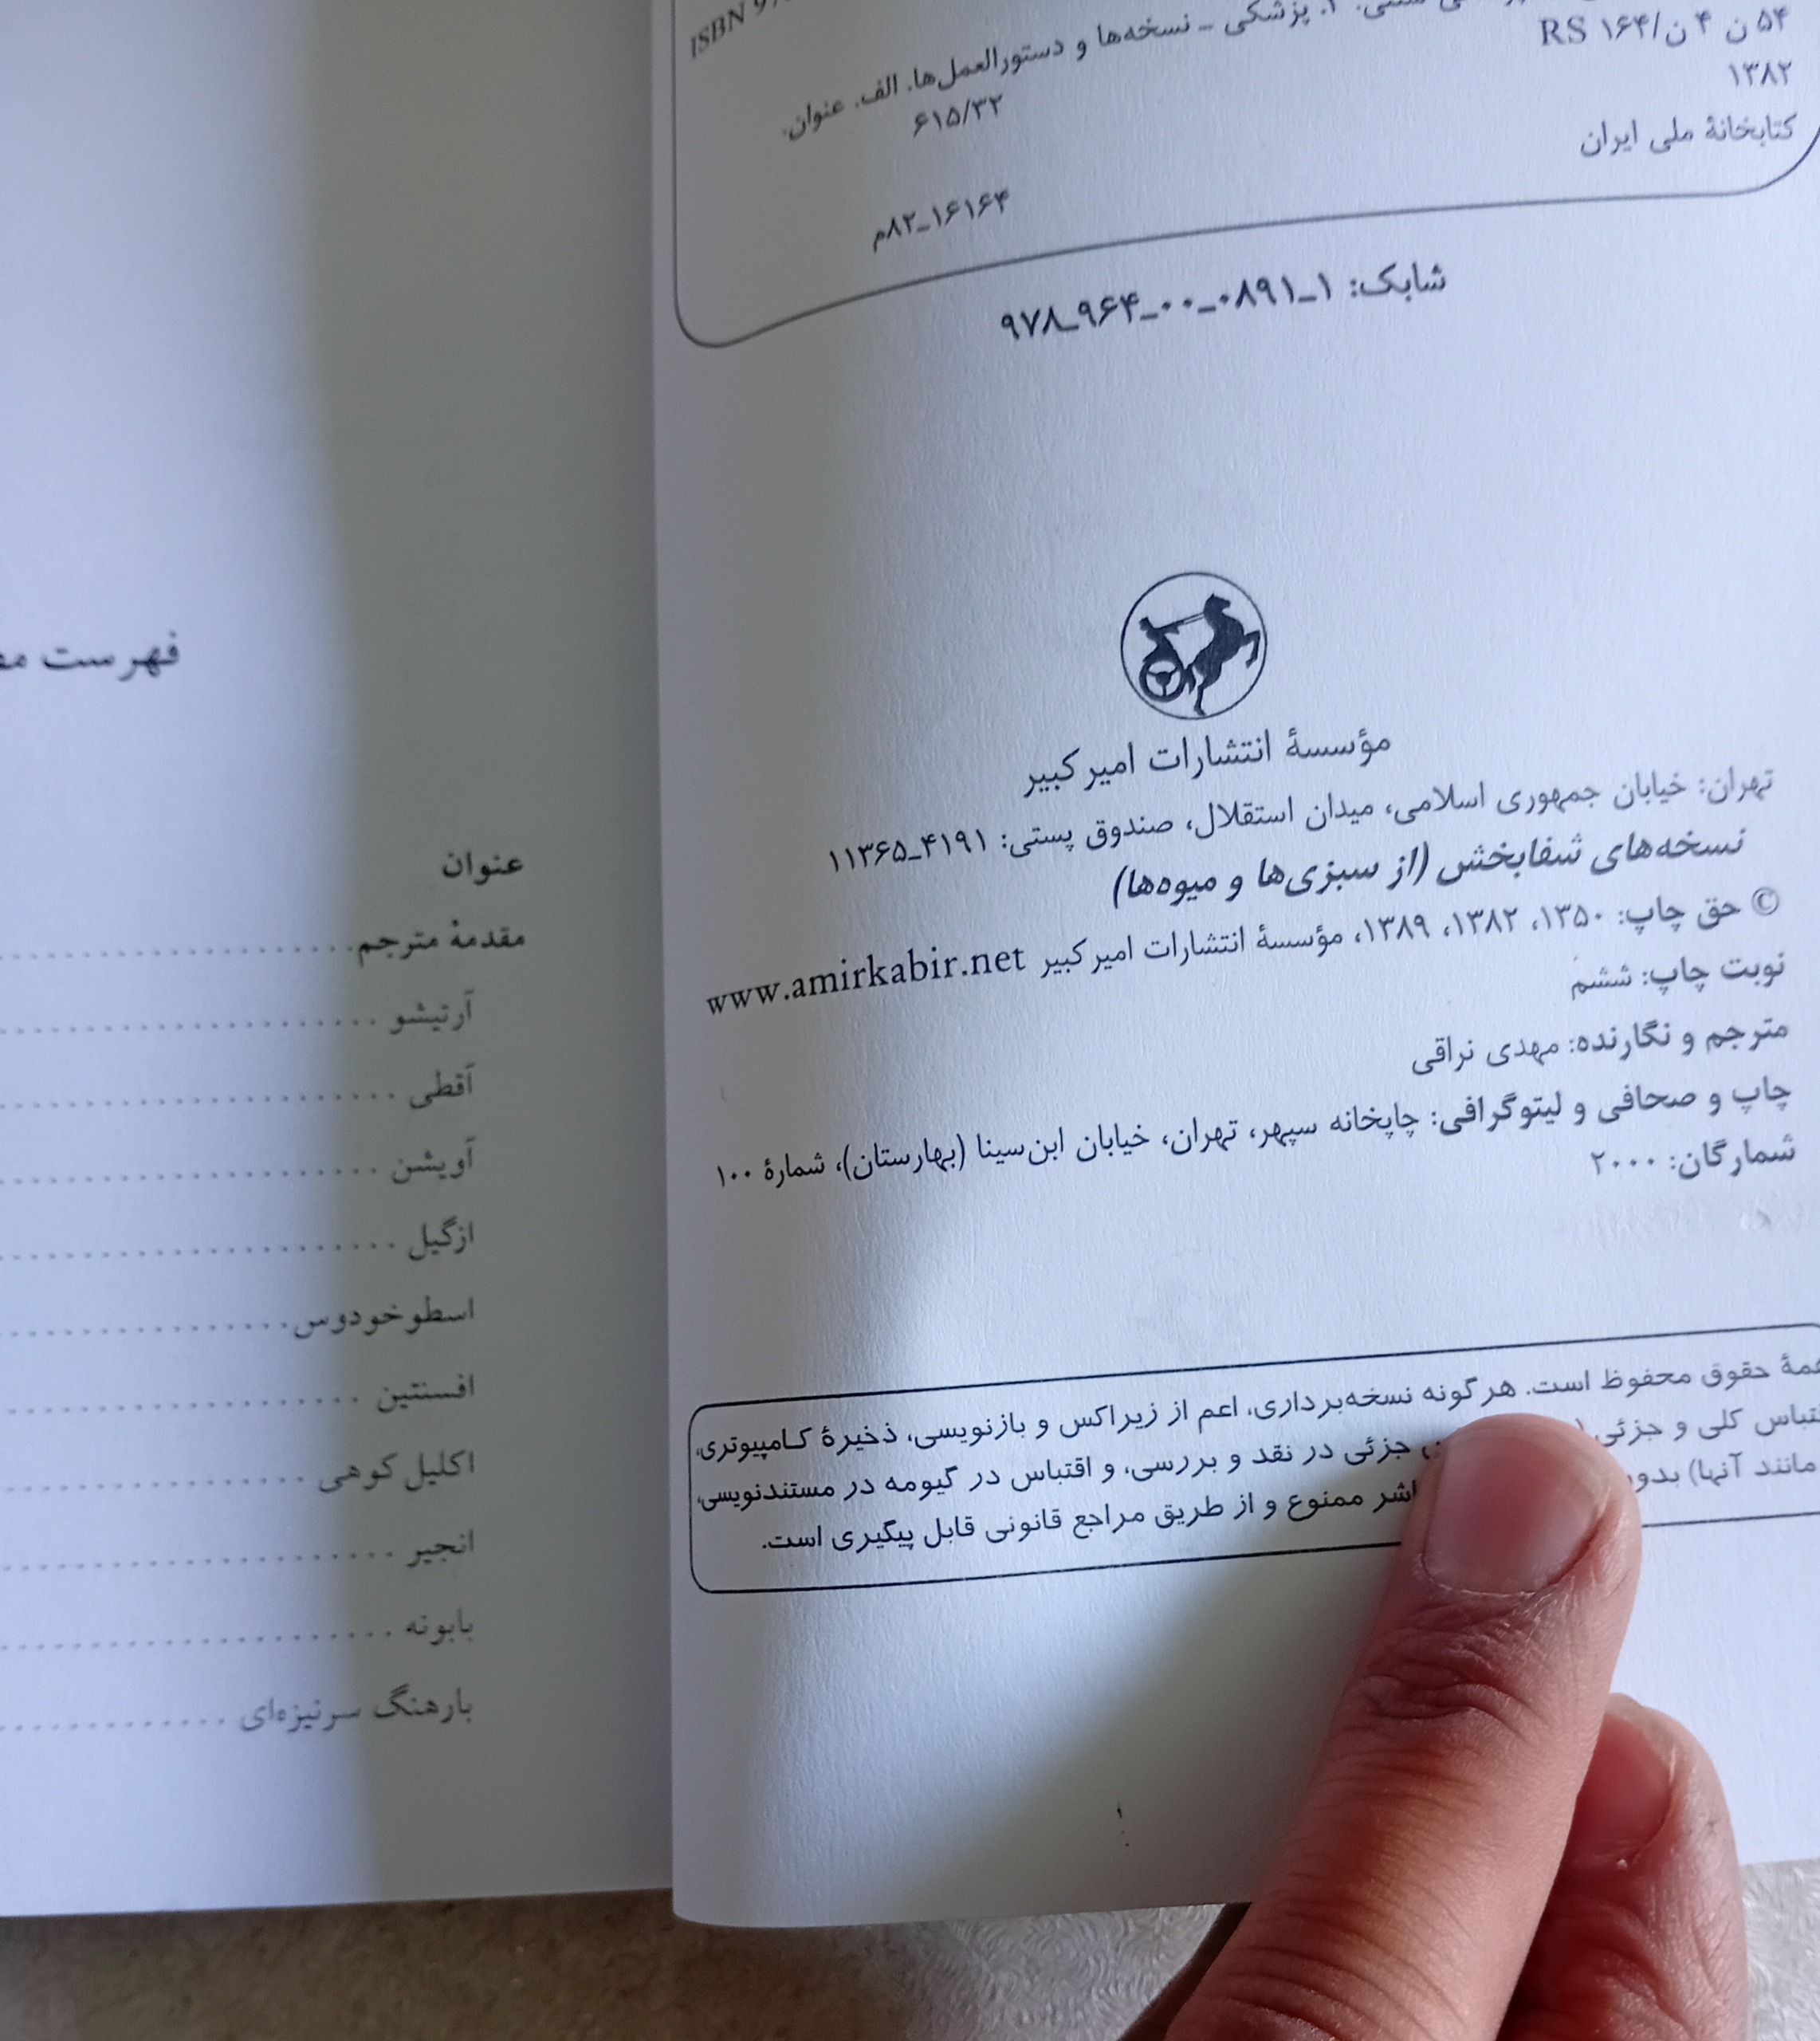 ISBN
پزشکی ــ نسخه‌ها و دستورالعمل‌ها. الف. عنوان.
۵۴ ن ۴ ن/۱۶۴ RS
۶۱۵/۳۲
۱۳۸۲
کتابخانهٔ ملی ایران
۱۶۱۶۴ــ۸۲م
شابک: ۱ــ۰۸۹۱ــ۰۰ــ۹۶۴ــ۹۷۸
مؤسسهٔ انتشارات امیرکبیر
تهران: خیابان جمهوری اسلامی، میدان استقلال، صندوق پستی: ۴۱۹۱ــ۱۱۳۶۵
نسخه‌های شفابخش (از سبزی‌ها و میوه‌ها)
© حق چاپ: ۱۳۵۰، ۱۳۸۲، ۱۳۸۹، مؤسسهٔ انتشارات امیرکبیر www.amirkabir.net
نوبت چاپ: ششم
مترجم و نگارنده: مهدی نراقی
چاپ و صحافی و لیتوگرافی: چاپخانه سپهر، تهران، خیابان ابن‌سینا (بهارستان)، شمارهٔ ۱۰۰
شمارگان: ۲۰۰۰
همهٔ حقوق محفوظ است. هرگونه نسخه‌برداری، اعم از زیراکس و بازنویسی، ذخیرهٔ کامپیوتری،
کلی و جزئی جزئی در نقد و بررسی، و اقتباس در گیومه در مستندنویسی،
مانند آنها) ممنوع و از طریق مراجع قانونی قابل پیگیری است.
فهرست
عنوان
مقدمهٔ مترجم
آرتیشو
آقطی
آویشن
ازگیل
اسطوخودوس
افسنتین
اکلیل کوهی
انجیر
بابونه
بارهنگ سرنیزه‌ای